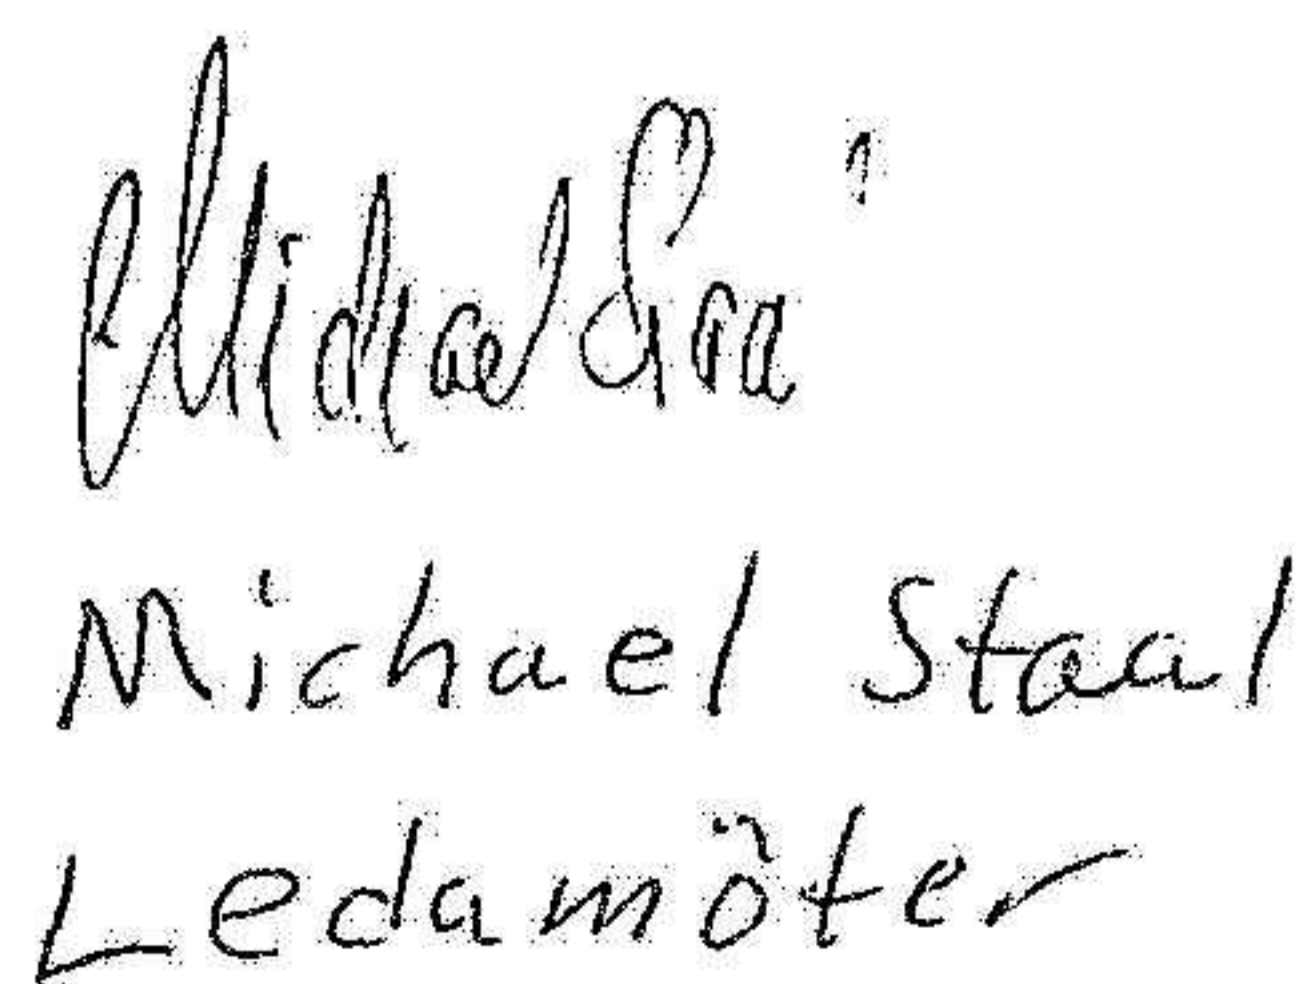 Michael Staal
Michael Staal
Ledamöter